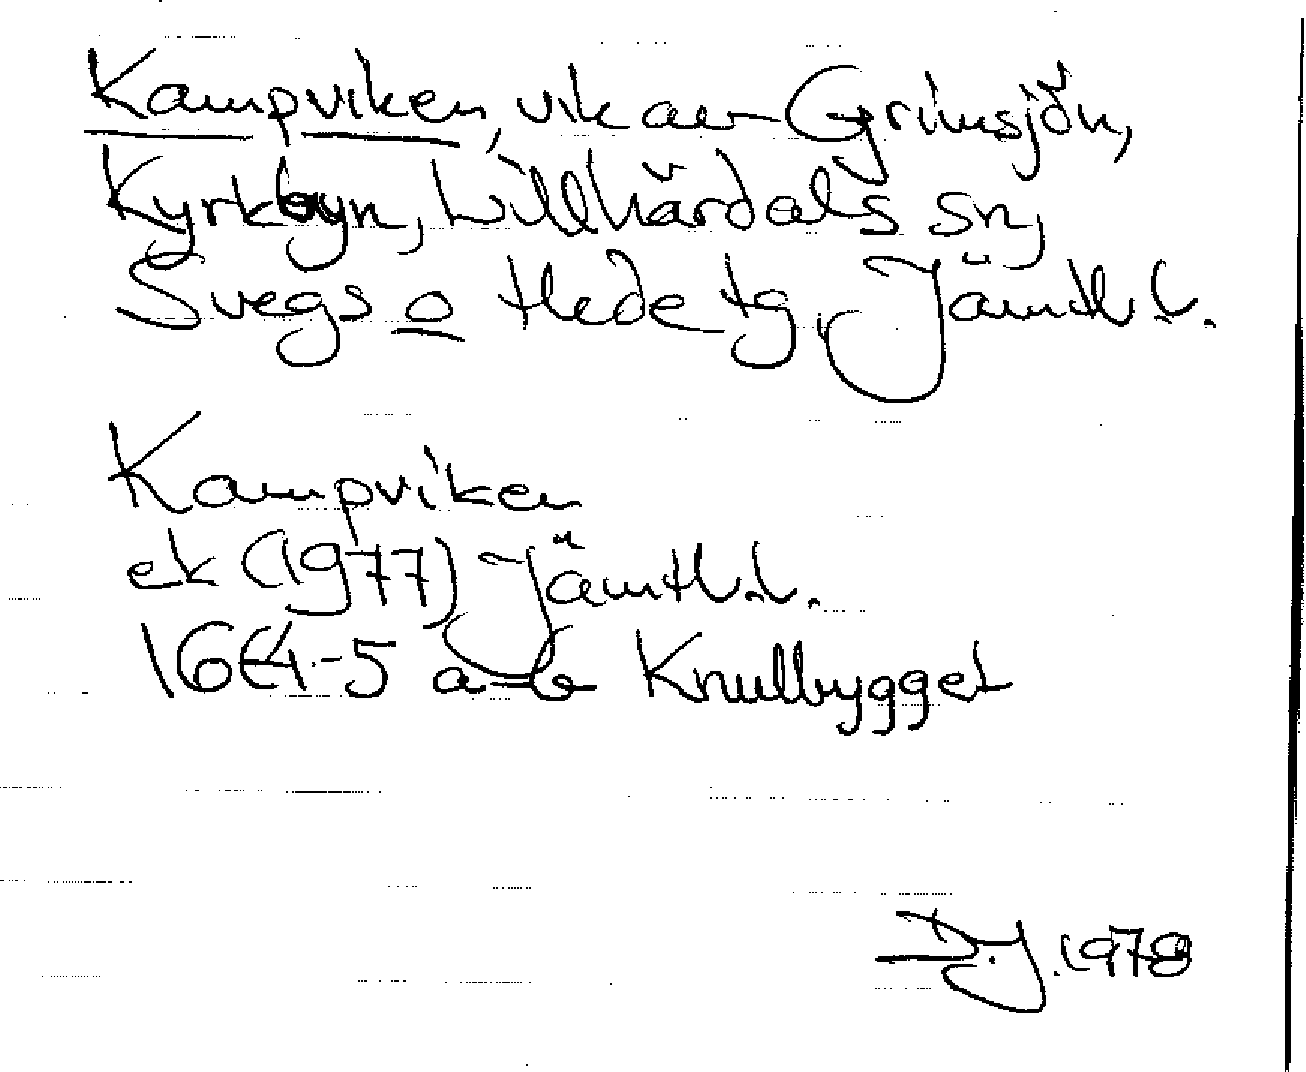 Kampviken, vik av Grimsjön,
Kyrkbyn, Lillhärdals sn,
Svegs o Hede tg, Jämtl. l.
Kampviken
ek (1977) Jämtl. l.
16E4-5 a-b Knullbygget
D.J. 1978